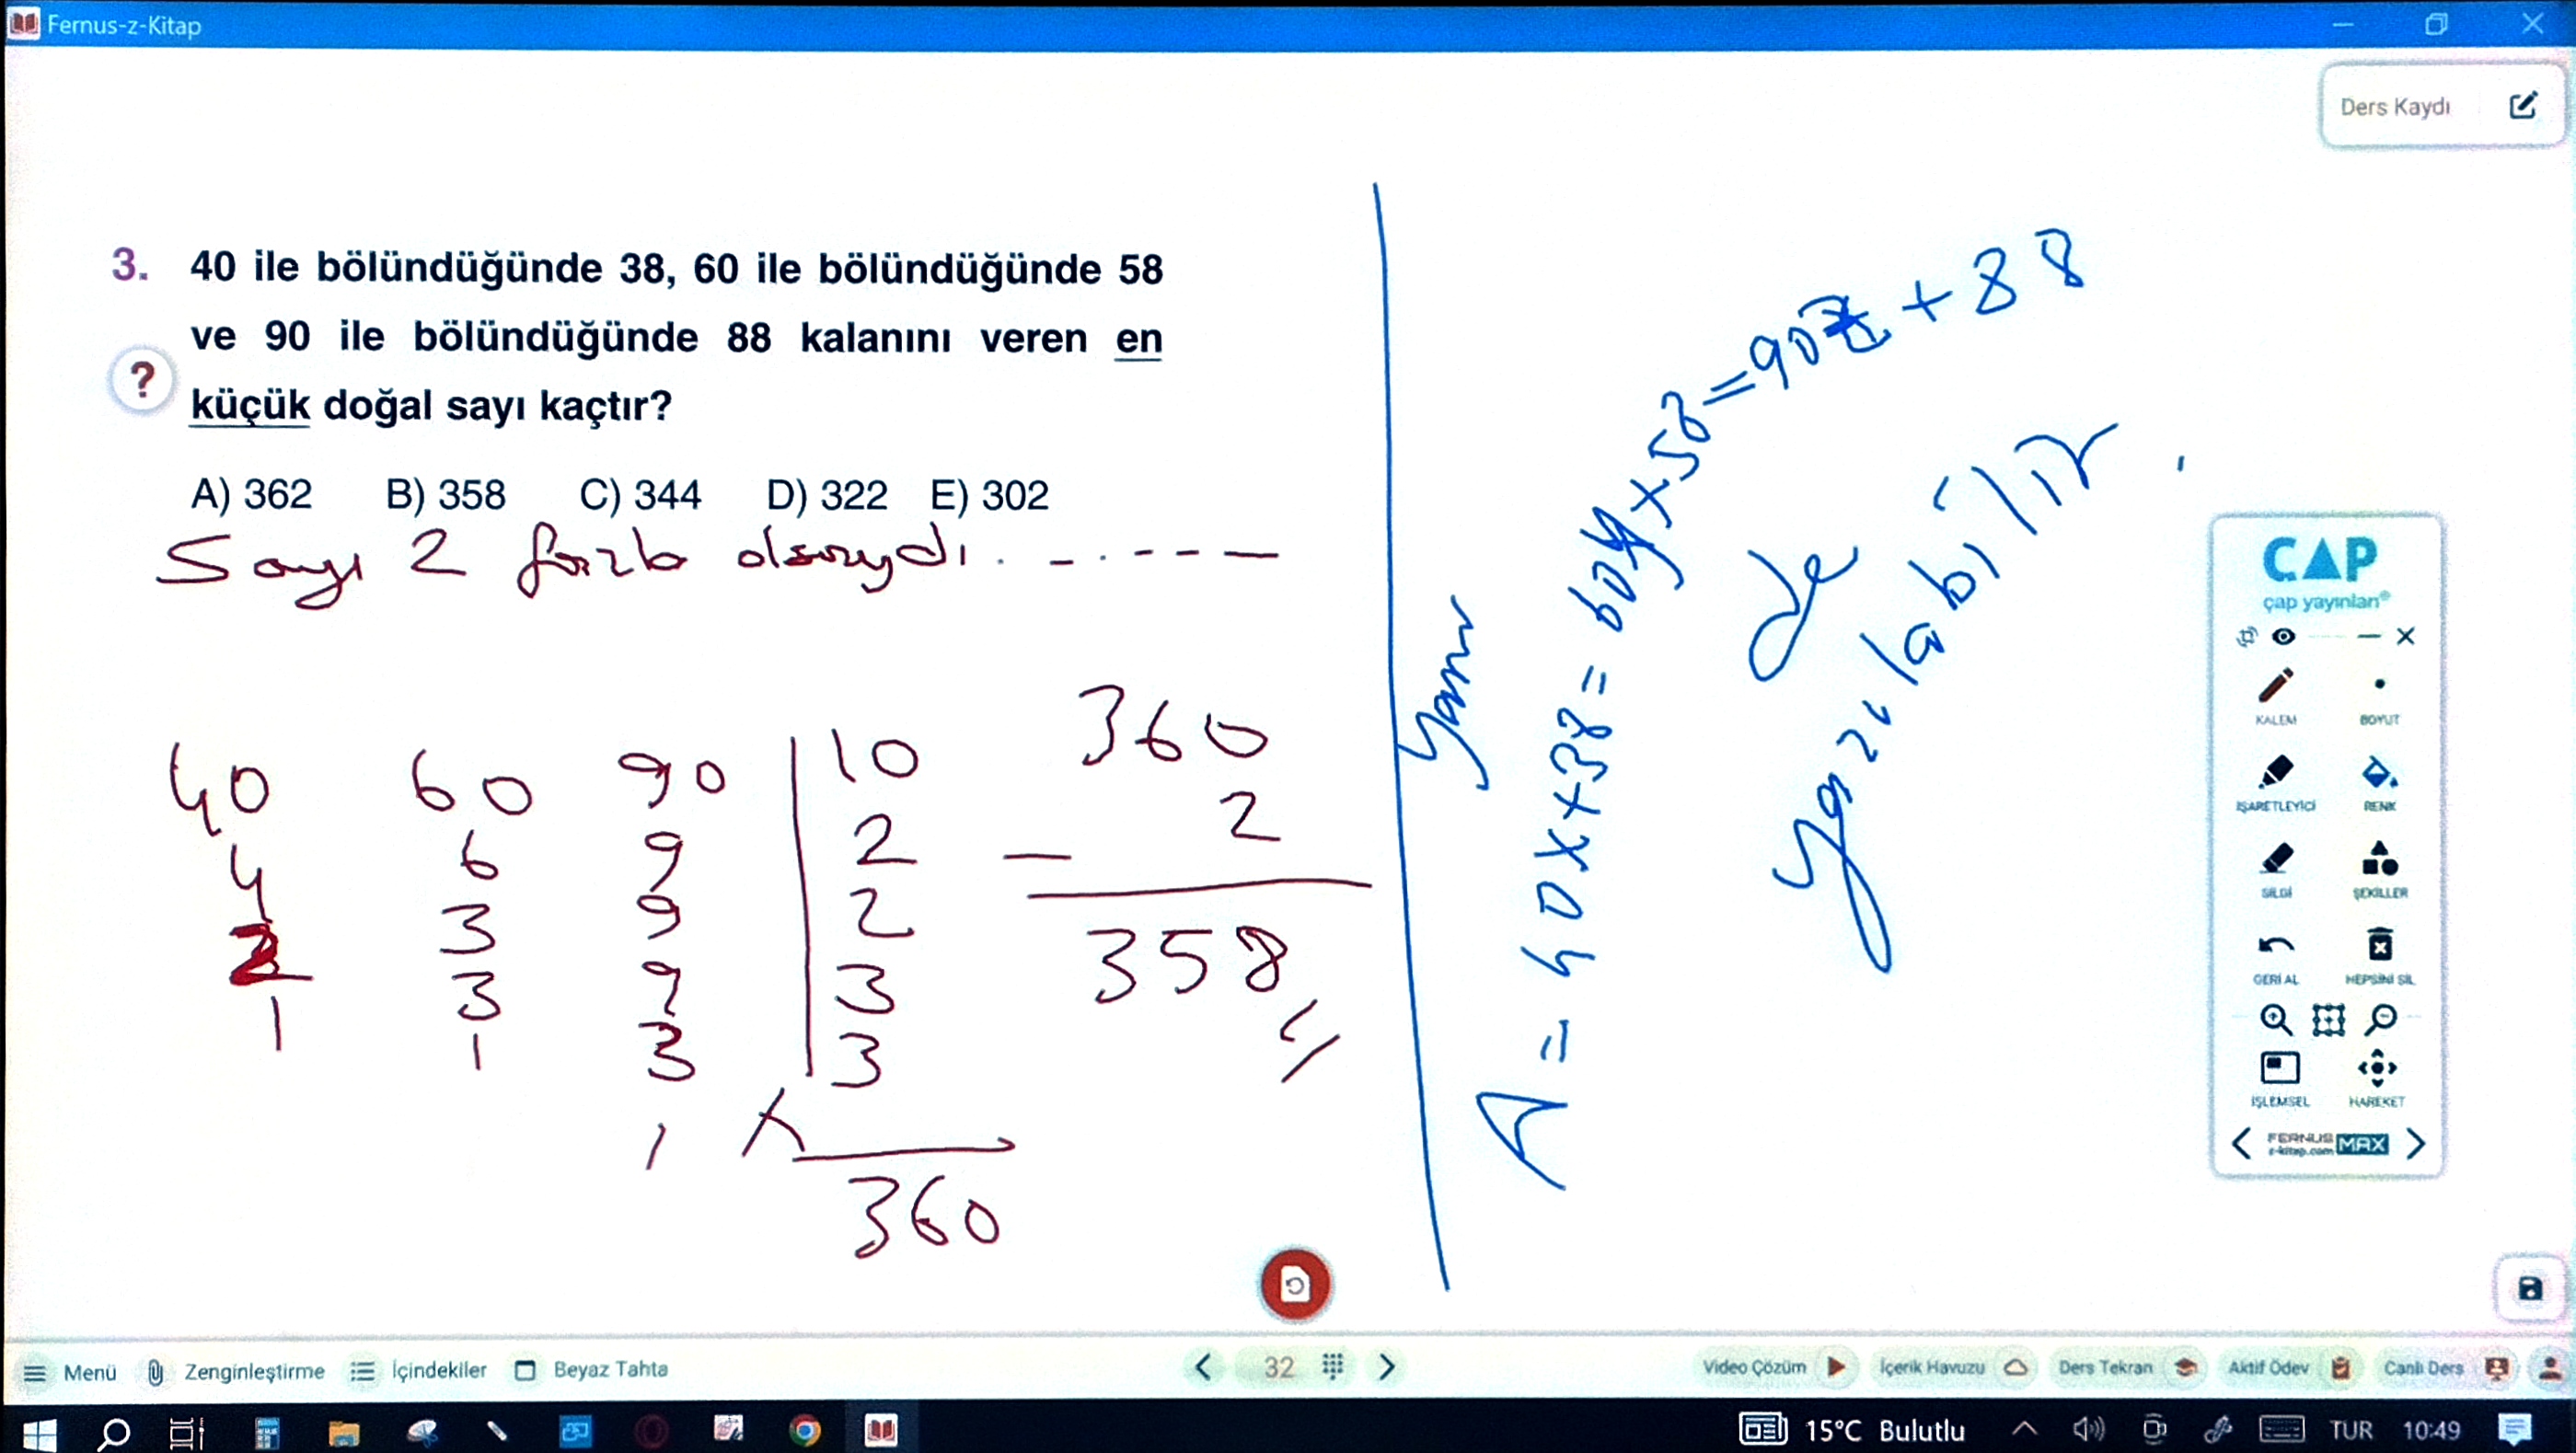 Fernus-z-Kitap
Ders Kaydı
3. 40 ile bölündüğünde 38, 60 ile bölündüğünde 58
ve 90 ile bölündüğünde 88 kalanını veren en
küçük doğal sayı kaçtır?
?
A) 362 B) 358 C) 344 D) 322 E) 302
Sayı 2 fazla olsaydı . _ . - - - —
40 60 90 | 10
4 6 9 | 2
2 3 9 | 2
1 3 9 | 3
1 3 | 3
1 x
360
360
2
—
358
Yani
A = 40x+38 = 60y+58 = 90z+88
de
yazılabilir.
ÇAP
çap yayınları®
KALEM BOYUT
İŞARETLEYİCİ RENK
SİLGİ ŞEKİLLER
GERİ AL HEPSİNİ SİL
İŞLEMSEL HAREKET
FERNUS MAX
z-kitap.com
Menü Zenginleştirme İçindekiler Beyaz Tahta 32 Video Çözüm İçerik Havuzu Ders Tekran Aktif Ödev Canlı Ders
15°C Bulutlu TUR 10:49